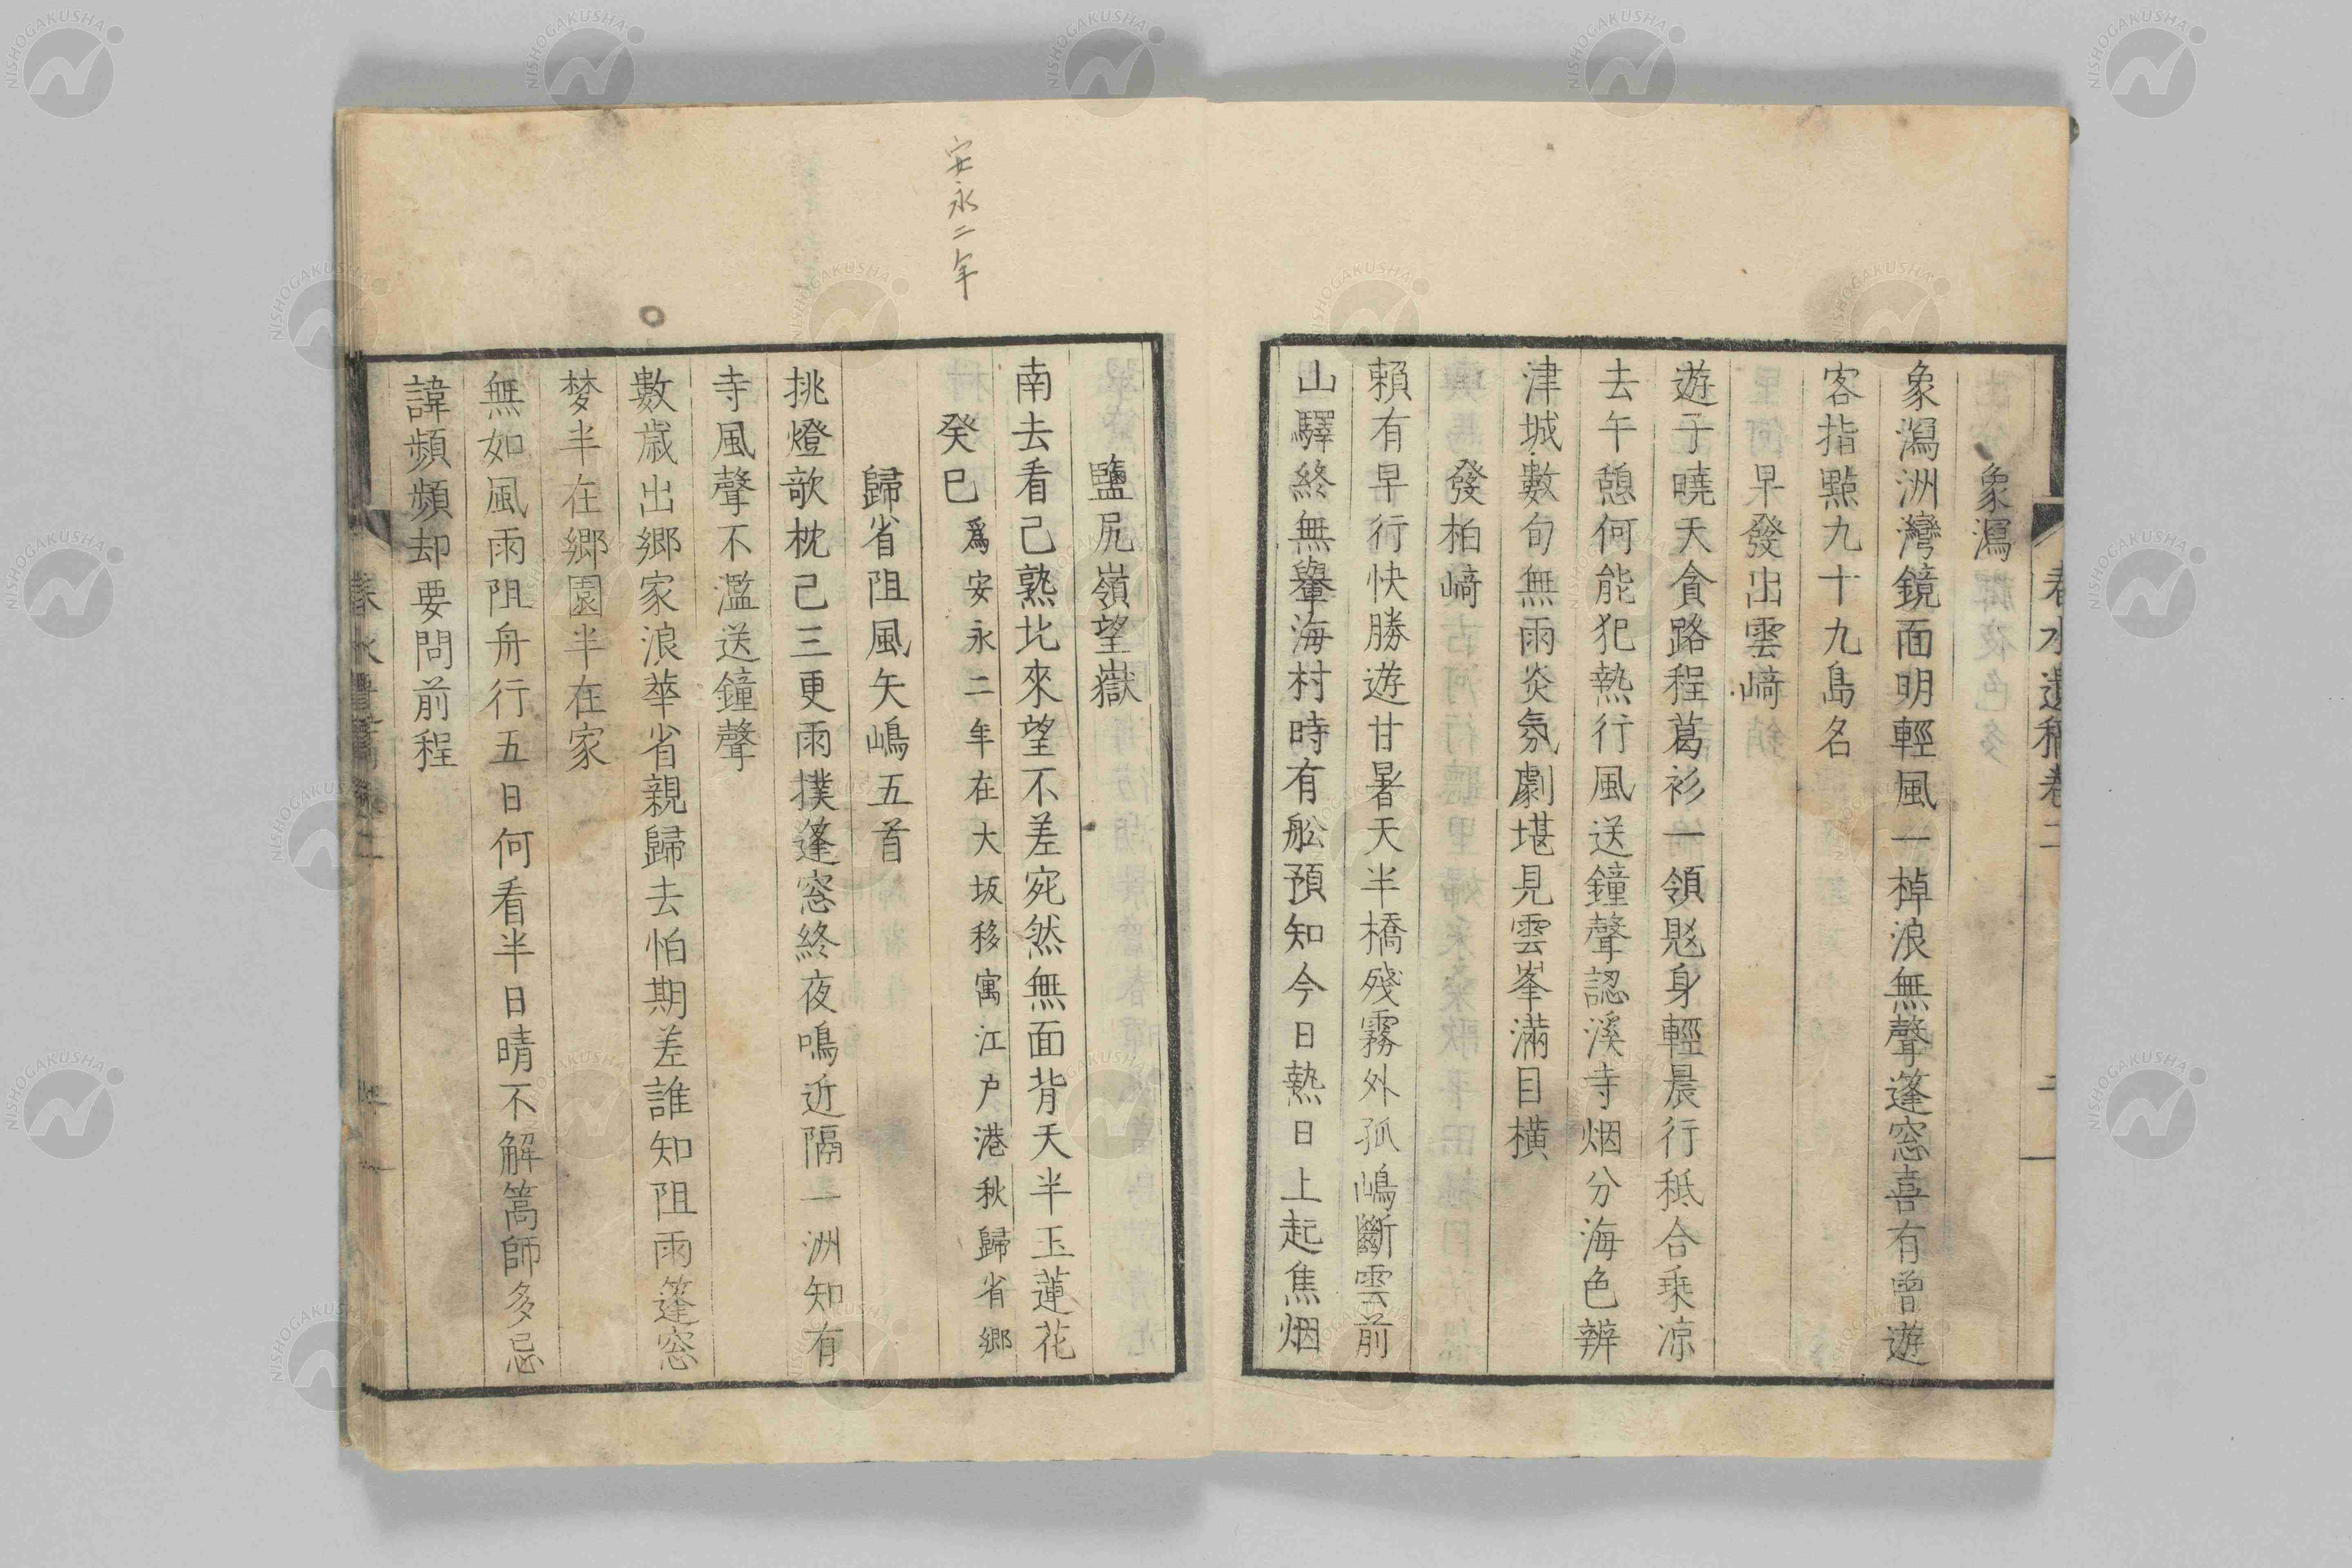 春水遺稿卷二
象瀉
象瀉洲灣鏡面明輕風一棹浪無聲篷窓喜有曾遊
客指點九十九島名
早發出雲﨑
遊子曉天貪路程葛衫一領毖身輕晨行秪合乗凉
去午憩何能犯熱行風送鐘聲認溪寺烟分海色辨
津城數旬無雨炎氛劇堪見雲峯滿目横
發柏﨑
賴有早行快勝遊甘暑天半橋殘霧外孤嶋斷雲前
山驛終無轝海村時有舩預知今日熱日上起焦烟
鹽尻嶺望嶽
南去看已熟北來望不差宛然無面背天半玉蓮花
安永二年
癸巳爲安永二年在大坂移寓江户港秋歸省鄉
歸省阻風矢嶋五首
挑燈欹枕已三更雨撲篷窓終夜鳴近隔一洲知有
寺風聲不濫送鐘聲
數歳出鄉家浪華省親歸去怕期差誰知阻雨篷窓
梦半在鄉園半在家
無如風雨阻舟行五日何看半日晴不解篙師多忌
諱頻頻却要問前程
NISHOGAKUSHA